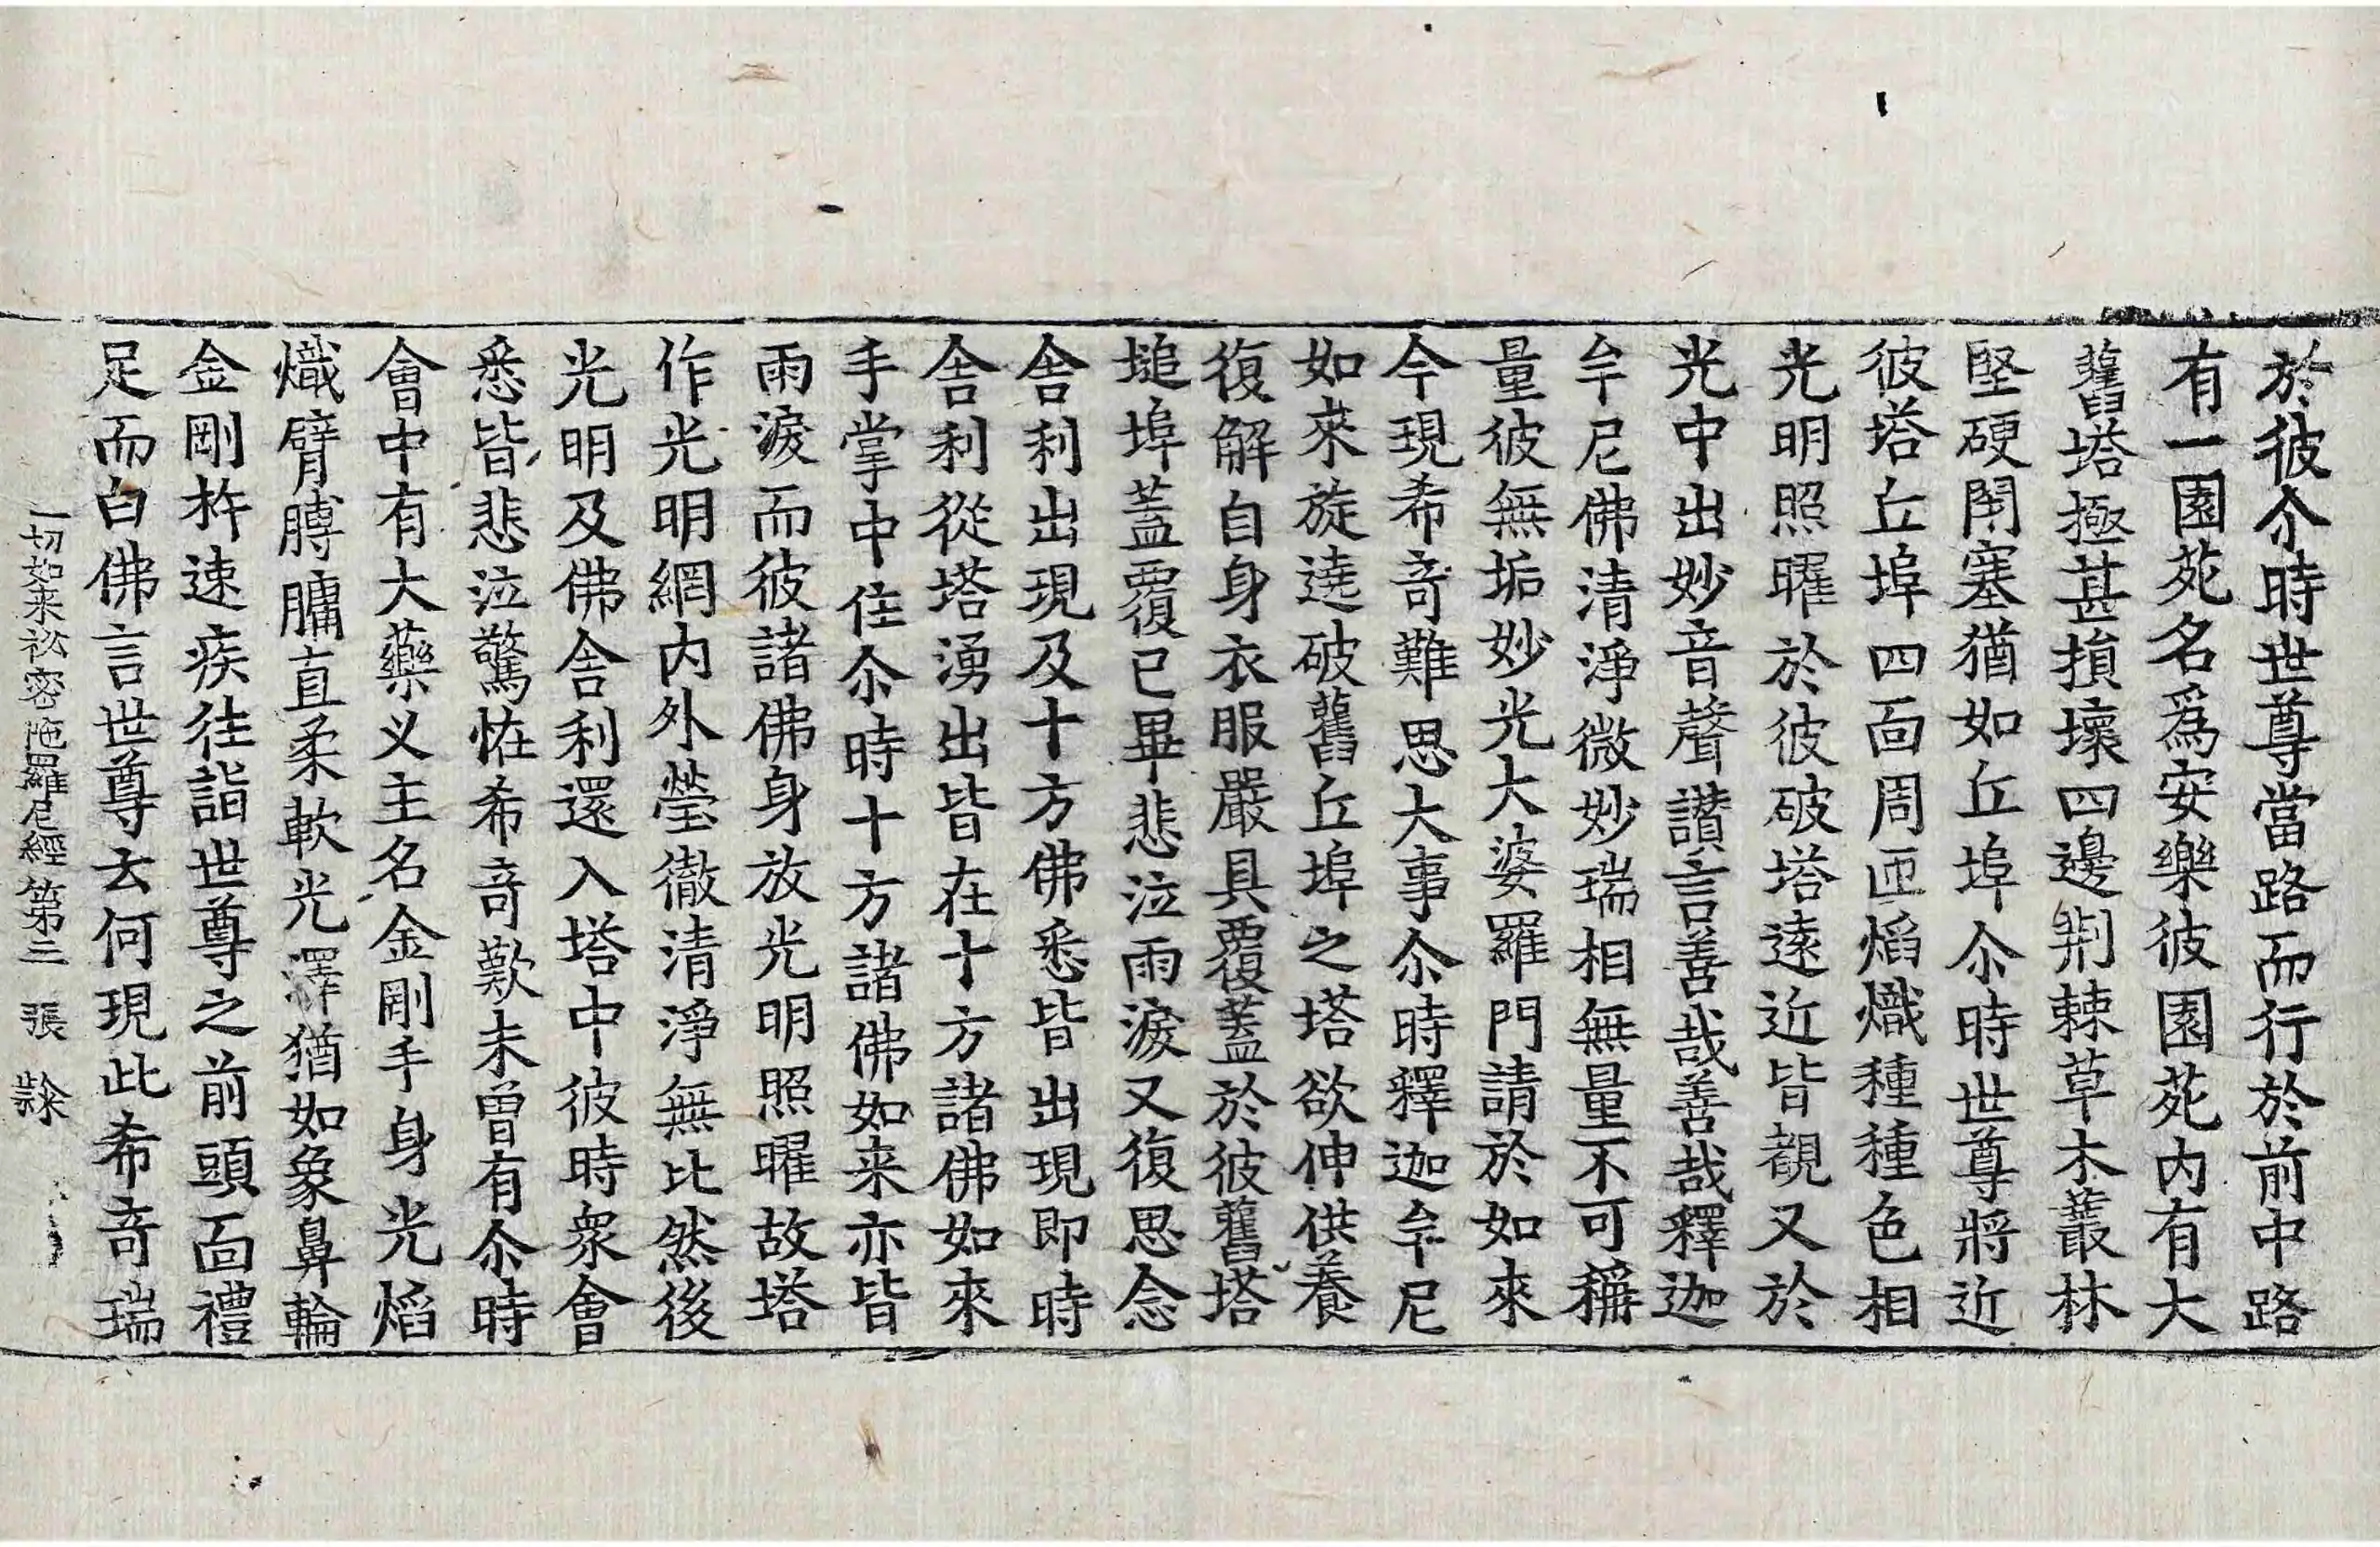 於彼尒時世尊當路而行於前中路
有一園苑名爲安樂彼園苑内有大
舊塔極甚損壞四邊荆棘草木叢林
堅硬閇塞猶如丘埠尒時世尊將近
彼塔丘埠四面周匝焰熾種種色相
光明照曜於彼破塔遠近皆覩又於
光中出妙音聲讃言善哉善哉釋迦
牟尼佛清淨微妙瑞相無量不可稱
量彼無垢妙光大婆羅門請於如來
今現希奇難思大事尒時釋迦牟尼
如來旋遶破舊丘埠之塔欲伸供養
復解自身衣服嚴具覆蓋於彼舊塔
塠埠蓋覆已畢悲泣雨淚又復思念
舍利出現及十方佛悉皆出現即時
舍利從塔湧出皆在十方諸佛如來
手掌中住尒時十方諸佛如来亦皆
雨淚而彼諸佛身放光明照曜故塔
作光明網内外瑩徹清淨無比然後
光明及佛舍利還入塔中彼時衆會
悉皆悲泣驚恠希奇歎未曾有尒時
會中有大藥义主名金剛手身光焰
熾臂膊𦟛直柔軟光澤猶如象鼻輪
金剛杵速疾往詣世尊之前頭面禮
足而白佛言世尊云何現此希奇瑞
一切如来袐密陁羅尼經第三 張 𪗆